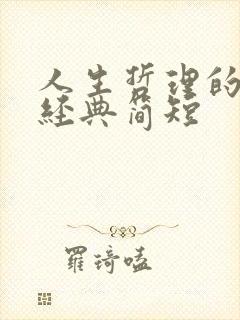 人生哲理的
經典简短
羅琦嗑